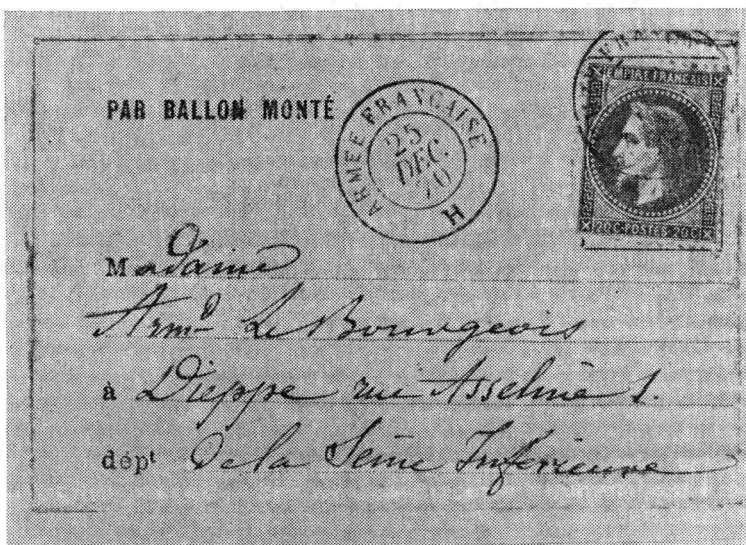 PAR BALLON MONTÉ
ARMÉE FRANÇAISE
25
DEC.
70
H
EMPIRE FRANÇAIS
20 C · POSTES · 20 C
Madame
Armd Le Bourgeois
à Dieppe rue Asseline 1.
dépt De la Seine Inférieure